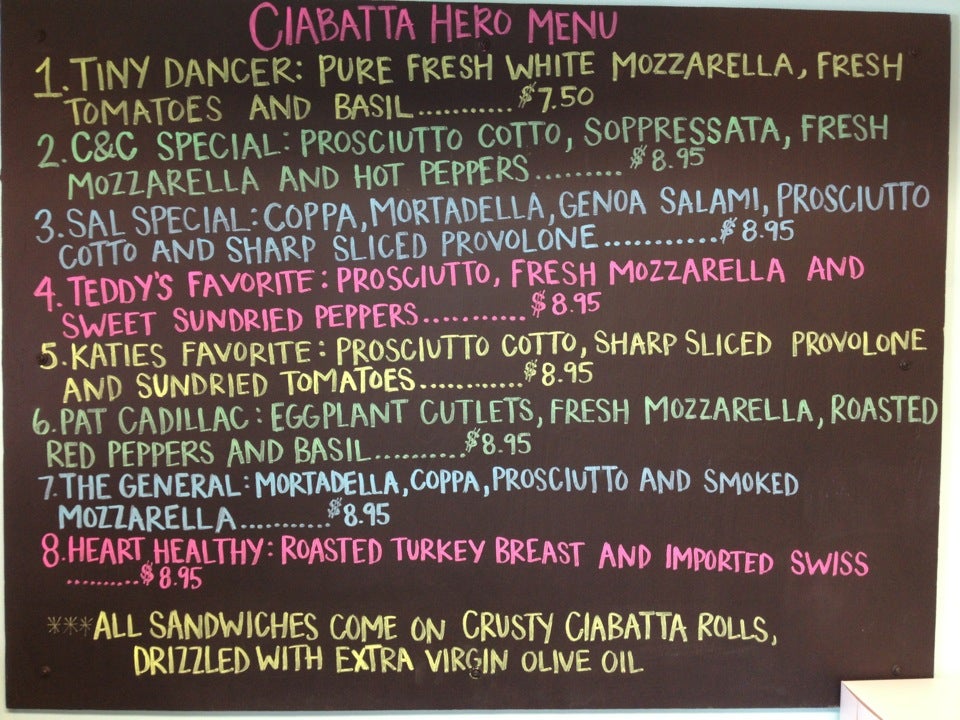 CIABATTA HERO MENU
1. TINY DANCER: PURE FRESH WHITE MOZZARELLA, FRESH
TOMATOES AND BASIL...........$7.50
2. C&C SPECIAL: PROSCIUTTO COTTO, SOPPRESSATA, FRESH
MOZZARELLA AND HOT PEPPERS.........$8.95
3. SAL SPECIAL: COPPA, MORTADELLA, GENOA SALAMI, PROSCIUTTO
COTTO AND SHARP SLICED PROVOLONE............$8.95
4. TEDDY'S FAVORITE: PROSCIUTTO, FRESH MOZZARELLA AND
SWEET SUNDRIED PEPPERS............$8.95
5. KATIES FAVORITE: PROSCIUTTO COTTO, SHARP SLICED PROVOLONE
AND SUNDRIED TOMATOES............$8.95
6. PAT CADILLAC: EGGPLANT CUTLETS, FRESH MOZZARELLA, ROASTED
RED PEPPERS AND BASIL..........$8.95
7. THE GENERAL: MORTADELLA, COPPA, PROSCIUTTO AND SMOKED
MOZZARELLA..........$8.95
8. HEART HEALTHY: ROASTED TURKEY BREAST AND IMPORTED SWISS
.........$8.95
***ALL SANDWICHES COME ON CRUSTY CIABATTA ROLLS,
DRIZZLED WITH EXTRA VIRGIN OLIVE OIL